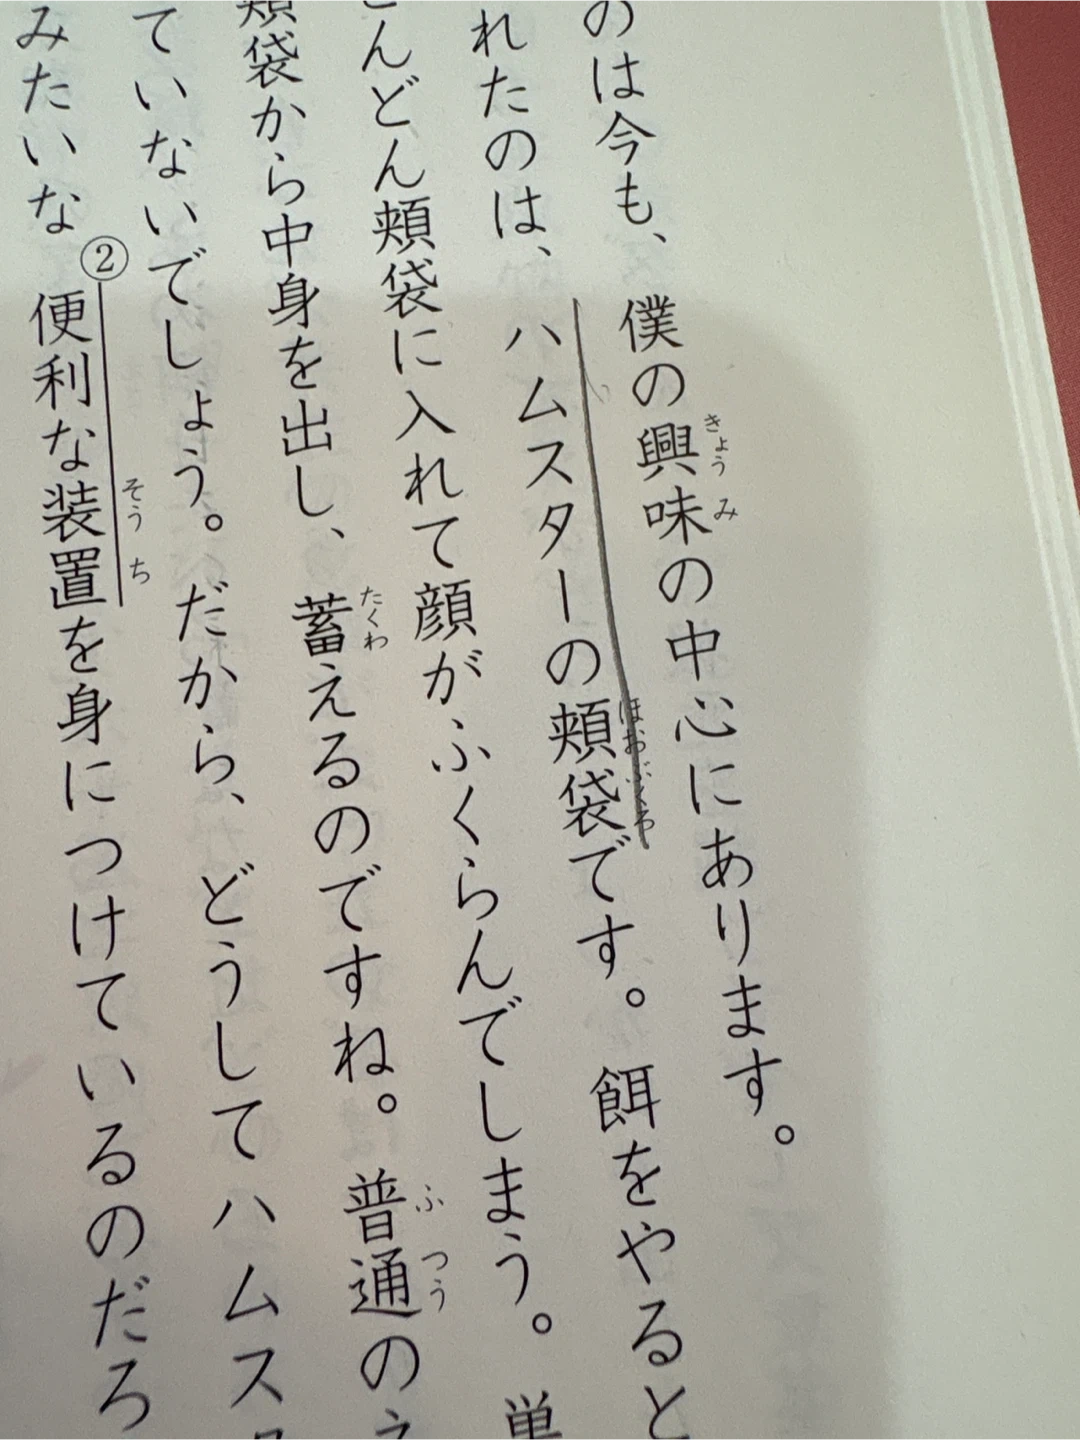 のは今も、僕の興味の中心にあります。
きょうみ
れたのは、ハムスターの頬袋です。餌をやると
ほおぶくろ
どんどん頬袋に入れて顔がふくらんでしまう。巣
頬袋から中身を出し、蓄えるのですね。普通の
たくわ
ふつう
ていないでしょう。だから、どうしてハムス
みたいな②便利な装置を身につけているのだろ
そうち